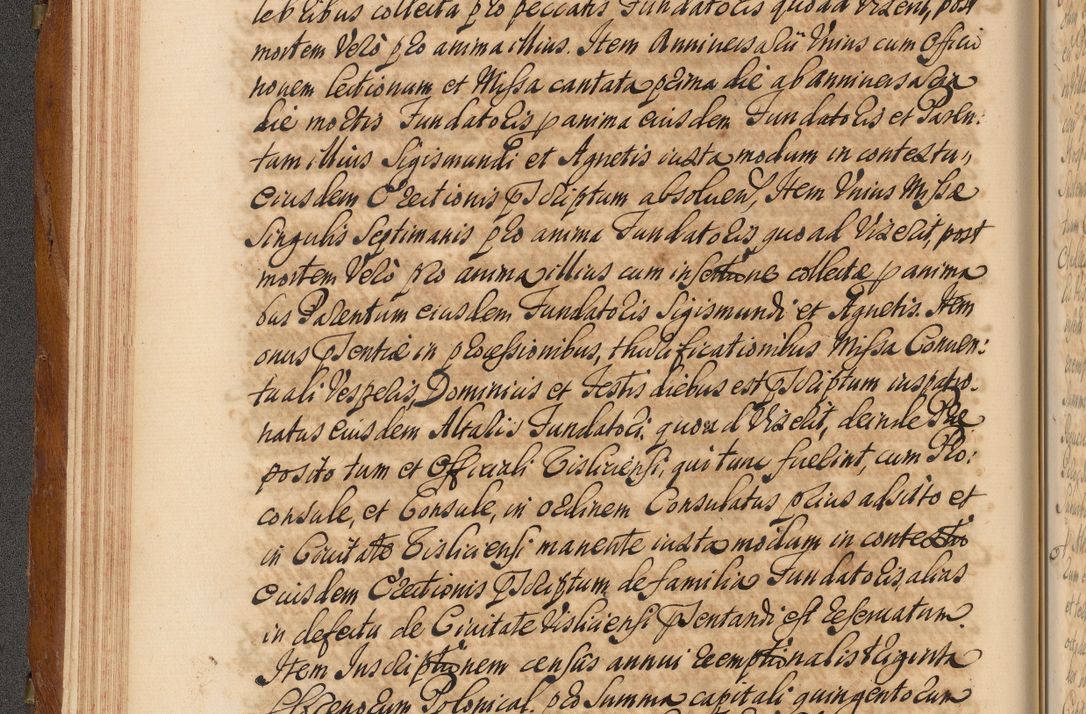 lebribus collecta pro peccatis Fundatoris quoad vixerit, post
mortem verò pro anima illius. Item Anniversarii Unius cum Officio
novem lectionum et Missa cantata prima die ab anniversaria
die mortis Fundatoris p anima eiusdem Fundatoris et Paren:
tum illius Sigismundi et Agnetis iuxta modum in contextu
eiusdem Erectionis pscriptum absoluen, Item Unius Missæ
singulis septimanis pro anima Fundatoris, quoad vixerit, post
mortem verò pro anima illius cum insertione collectæ p anima
bus Parentum eiusdem Fundatoris Sigismundi et Agnetis. Item
onus psentiæ in processionibus, thurificationibus Missa Conven:
tuali Vesperis, Dominicis et Festis diebus est pscriptum iuspatro-
natus eiusdem Altaris Fundatori, quoad vixerit, deinde Præ
posito tum et Officiali Visliciensi, qui tunc fuerint, cum Pro:
consule, et Consule, in ordinem Consulatus prius adscito et
in Civitate Visliciensi manente iuxta modum in contextu
eiusdem Erectionis pscriptum de familia Fundatoris, alias
in defectu de Civitate Visliciensi psentandi est reservatum.
Item Inscriptionem census annui reemptionalis triginta
Florenorum Polonical. pro summa capitali quingentorum